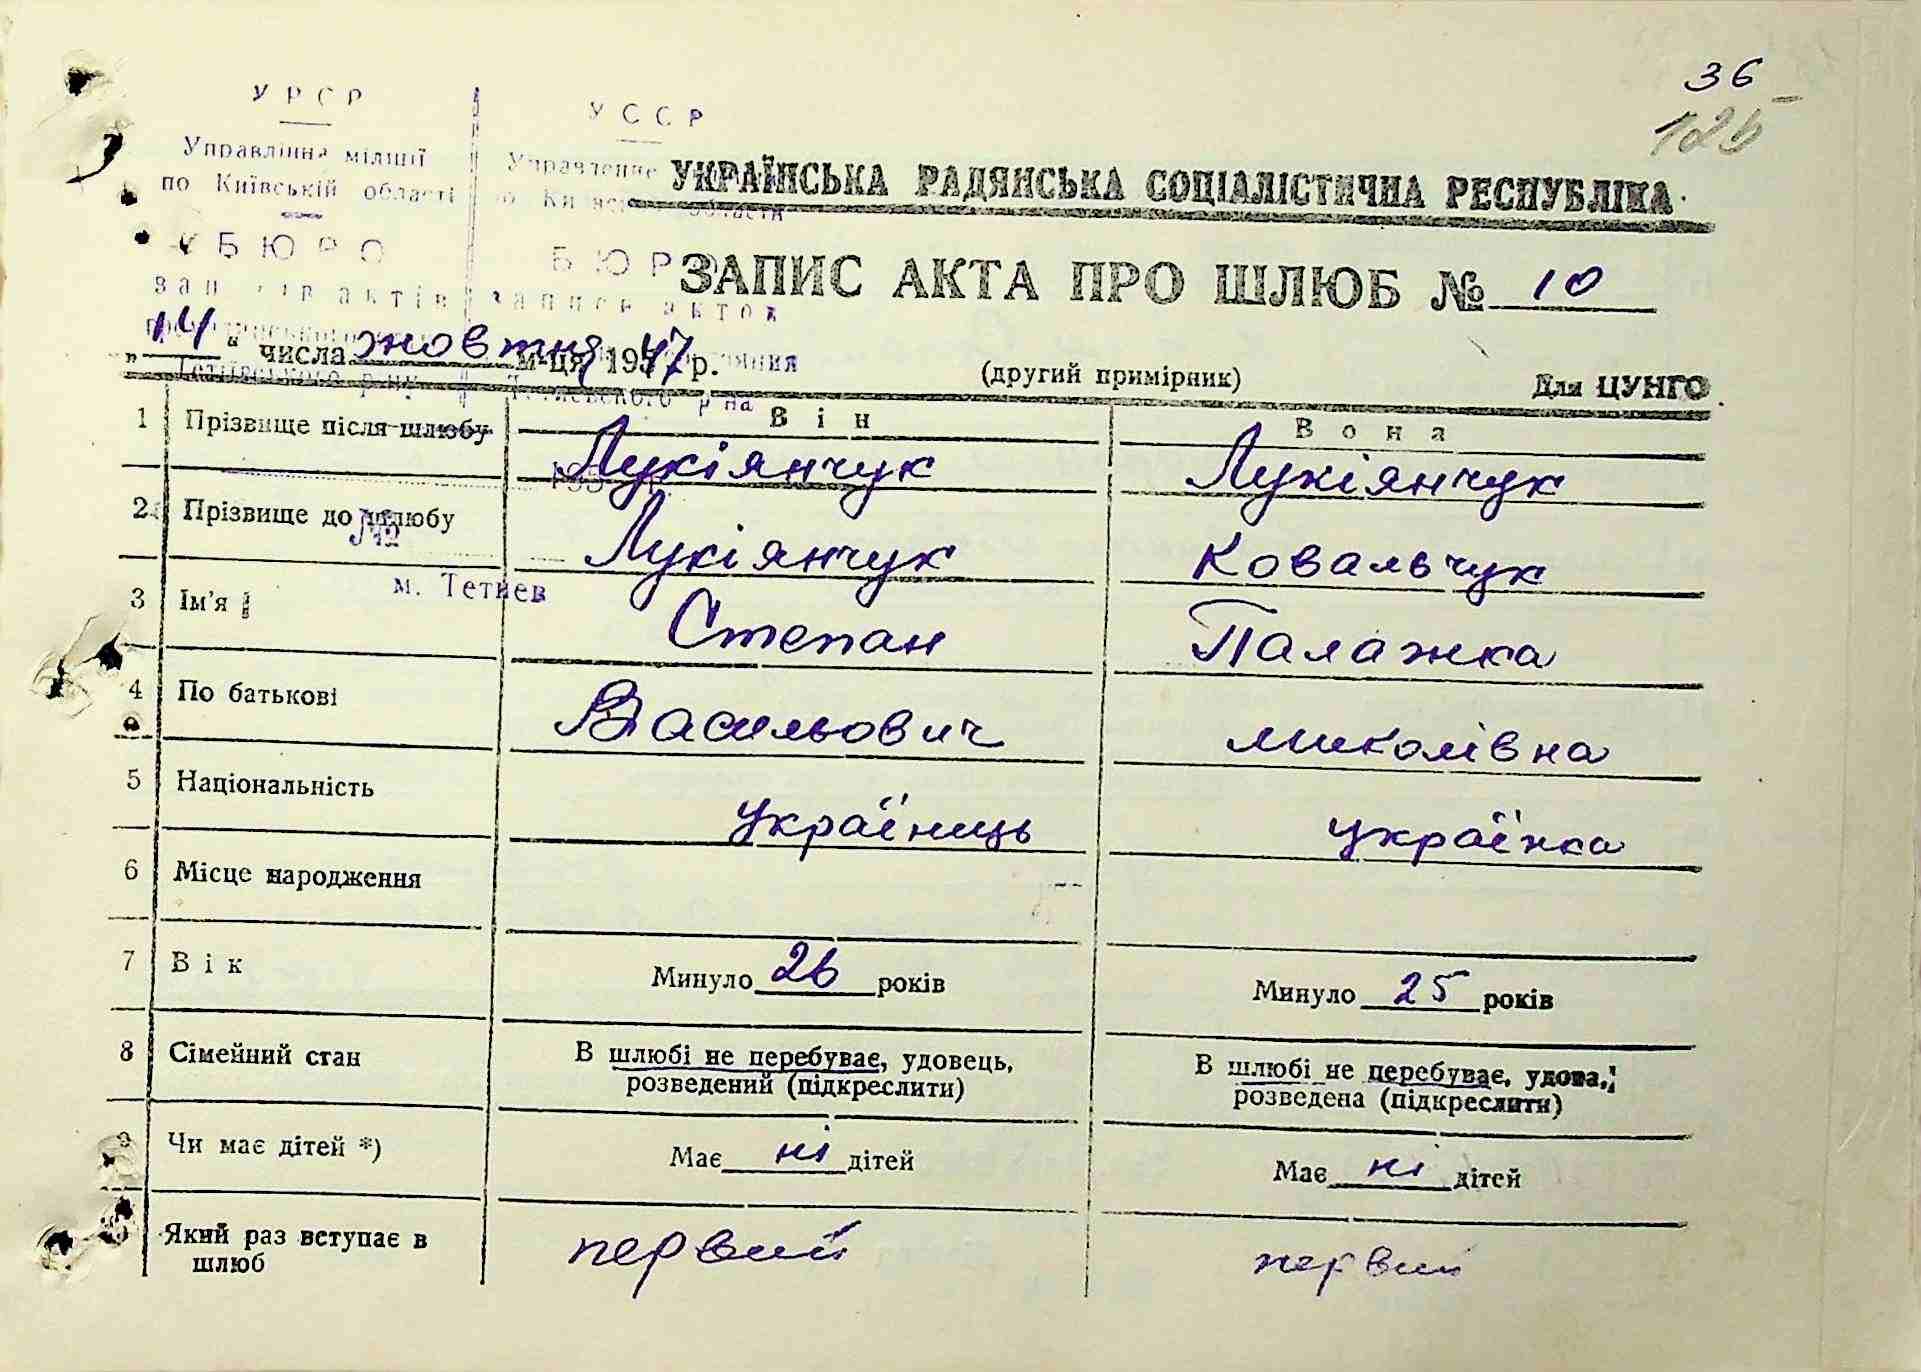 36
125
УРСР
Управління міліції
по Київській області
БЮРО
УССР
Управление
области
БЮР
запис актов
УКРАЇНСЬКА РАДЯНСЬКА СОЦІАЛІСТИЧНА РЕСПУБЛІКА
ЗАПИС АКТА ПРО ШЛЮБ № 10
„14“ числа жовтня м-ця 1947 р. (другий примірник) Для ЦУНГО
Він Вона
1 Прізвище після шлюбу Лукіянчук Лукіянчук
2 Прізвище до шлюбу Лукіянчук Ковальчук
№
м. Тетиев
3 Ім'я Степан Палажка
4 По батькові Васильович миколівна
5 Національність україниць українка
6 Місце народження
7 Вік Минуло 26 років Минуло 25 років
8 Сімейний стан В шлюбі не перебуває, удовець, розведений (підкреслити) В шлюбі не перебуває, удова, розведена (підкреслити)
9 Чи має дітей *) Має ні дітей Має ні дітей
Який раз вступає в шлюб первий первий